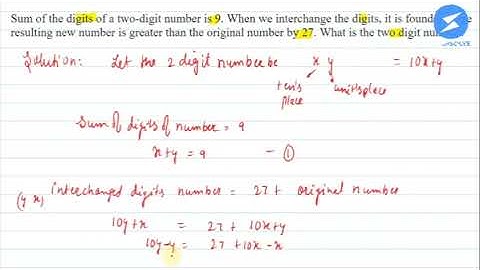 Sum of the digits of a two-digit number is 9. When we interchange the digits, it is found
resulting new number is greater than the original number by 27. What is the two digit
Solution: Let the 2 digit number be x y = 10x+y
ten's place unit's place
Sum of digits of number = 9
x+y = 9 - ①
(y x) interchanged digits number = 27 + original number
10y+x = 27 + 10x+y
10y-y = 27 + 10x - x